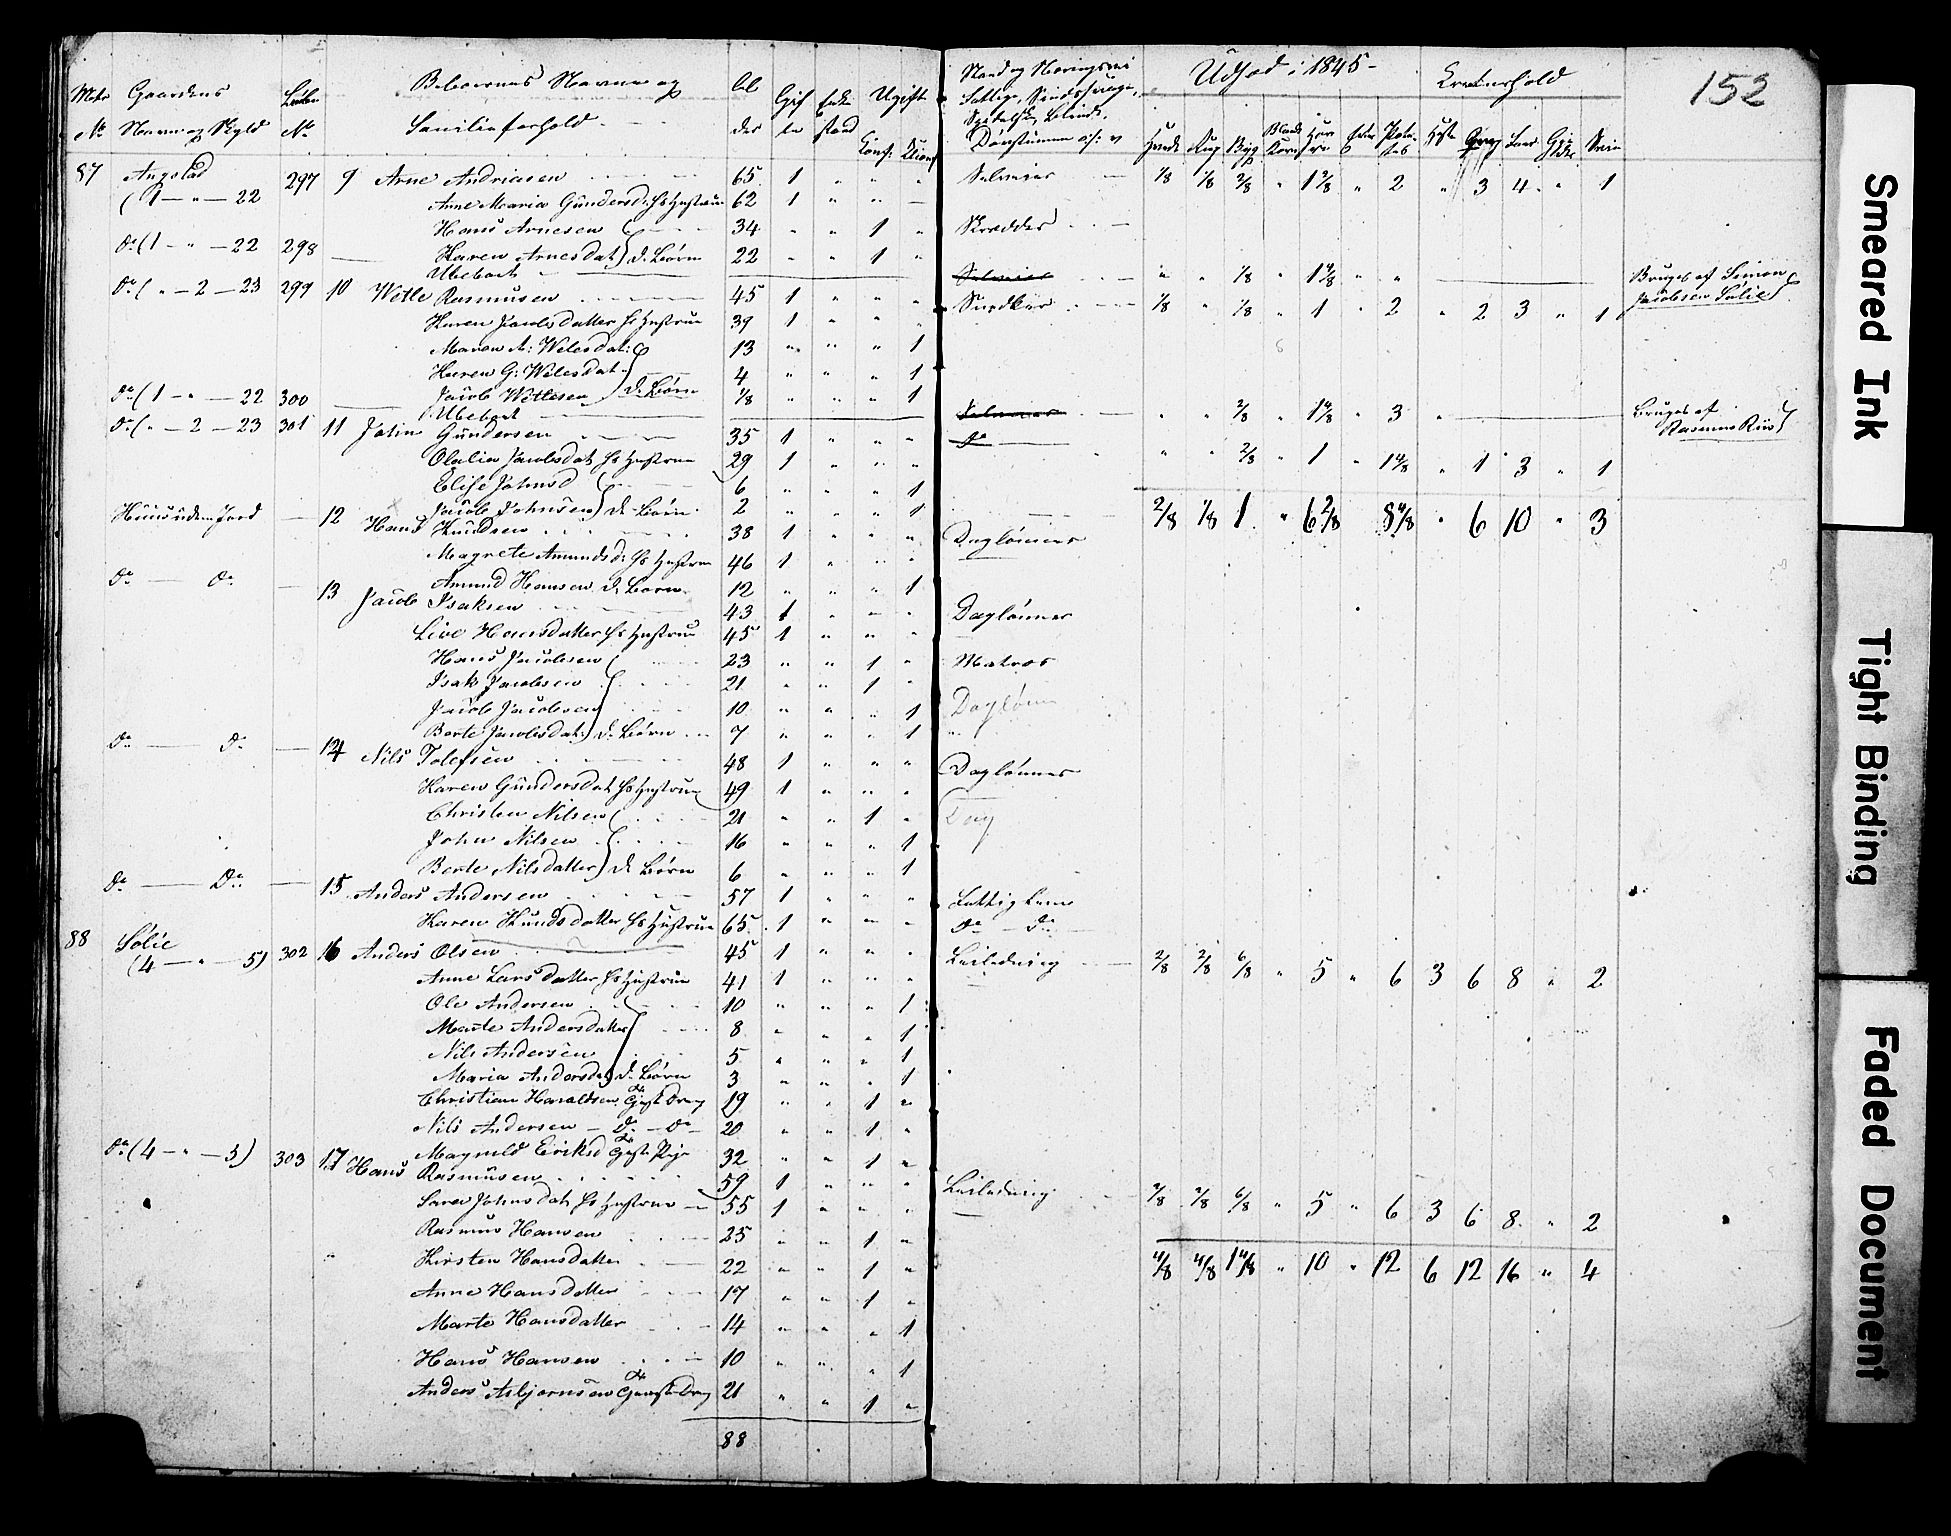 152
Matr Gaardens Løbe Beboernes Navne og Al Gif Enke Ugift
No Navn og Skyld No Familieforhold der te stand Conf:
Stand og Næringsvei Udsæd i 1845 Creaturhold
Fattige, Sindssvage,
Spedalske, Blinde,
Døvstumme o: s: v Hvede Rug Byg Blandkorn Havre Erter Potetes Heste Qvæg Faar Gjeder Sviin
87 Angstad 297 9 Arne Andriasen 65 1 " " " Selveier 1/8 1/8 2/8 " 1 2/8 " 2 " 3 4 " 1
(1 — " — 22 Anne Maria Gundersd: Hs Hustrue 62 1 " "
Hans Arnesen 34 " " 1 " Skrædder
Do (1 — " — 22 298 Karen Arnesdat D. Børn 22 " " 1 "
Ubeboet Selveier " " 1/8 " 1 4/8 " " Bruges af Simon
Jacobsen Solie
Do ( " — 2 — 23 299 10 Wetle Rasmusen 45 1 " " " Snedker 1/8 " 1/8 " 1 " 2 " 2 3 " 1
Karen Jacobsdatter Hs Hustrue 39 1 " " "
Maren A: Wetlesdat: 13 " " " 1
Karen G: Wetlesdat 4 " " " 1
Jacob Wetlesen D. Børn 1/8 " " " 1
Do (1 — " — 22 300 Ubeboet Selveier " " 2/8 " 1 4/8 " 3 " Bruges af
Rasmus Riis
Do ( " — 2 — 23 301 11 John Gundersen 35 1 " " " Do " " 2/8 " 1 " 1 4/8 " 1 3 " 1
Olalia Jacobsdat Hs Hustrue 29 1 " " "
Elise Johnsd 6 " " " 1
Jacob Johnsen D. Børn 2 " " " 1
2/8 1/8 1 " 6 2/8 8 4/8 " 6 10 " 3
Huus uden Jord 12 Hans Knudsen 38 1 " " " Daglønner
Magrete Amundsd: Hs Hustrue 46 1 " " "
Amund Hansen D. Barn 12 " " " 1
Do — Do — 13 Jacob Isaksen 43 1 " " " Daglønner
Live Hansdatter Hs Hustrue 45 1 " " "
Hans Jacobsen 23 " " 1 " Matros
Isak Jacobsen 21 " " 1 "
Jacob Jacobsen 10 " " " 1 Daglønn
Berte Jacobsdat: D. Børn 7 " " " 1
Do — Do — 14 Nils Tolefsen 48 1 " " " Daglønner
Karen Gundersdat Hs Hustrue 49 1 " " "
Christen Nilsen 21 " " 1 " Dag
John Nilsen 16 " " " 1
Berte Nilsdatter D. Børn 6 " " " 1
Do — Do — 15 Anders Andersen 57 1 " " " Fattig Lem
Karen Knudsdatter Hs Hustrue 65 1 " " " Do — Do
88 Solie 302 16 Anders Olsen 45 1 " " " Leilending 2/8 2/8 6/8 " 5 " 6 3 6 8 " 2
(4 — " — 5)
Anne Larsdatter Hs Hustrue 41 1 " " "
Ole Andersen 10 " " " 1
Marte Andersdatter 8 " " " 1
Nils Andersen 5 " " " 1
Maria Andersdat D. Børn 3 " " " 1
Christian Haraldsen 19 " " 1 "
Nils Andersen — Do — Do 20 " " 1 "
Magnild Eriksd 32 " " 1 "
Do (4 — " — 5) 303 17 Hans Rasmusen 59 1 " " " Leilending 2/8 2/8 6/8 " 5 " 6 3 6 8 " 2
Sara Johnsdat Hs Hustrue 55 1 " " "
Rasmus Hansen 25 " " 1 "
Kirsten Hansdatter 22 " " 1 "
4/8 4/8 1 4/8 " 10 " 12 6 12 16 " 4
Anne Hansdatter 17 " " 1 "
Marte Hansdatter 14 " " " 1
Hans Hansen 10 " " " 1
Anders Asbjørnsen 21 " " 1 "
88
Smeared Ink
Tight Binding
Faded Document